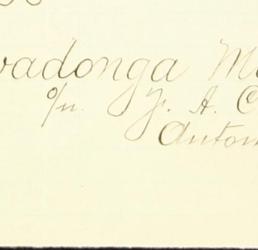 vadonga M
o/n. J. A. C
Antom